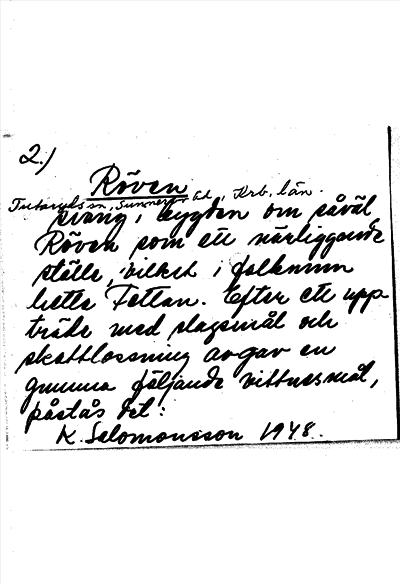 2.)
Röven
Tutaryds sn, Sunnerbo hd, Krb. län.
svang i bygden om såväl
Röven som ett närliggande
ställe, vilket i folkmun
hette Fettan. Efter ett upp-
träde med slagsmål och
skottlossning avgav en
gumma följande vittnesmål,
påstås det:
K. Salomonsson 1948.